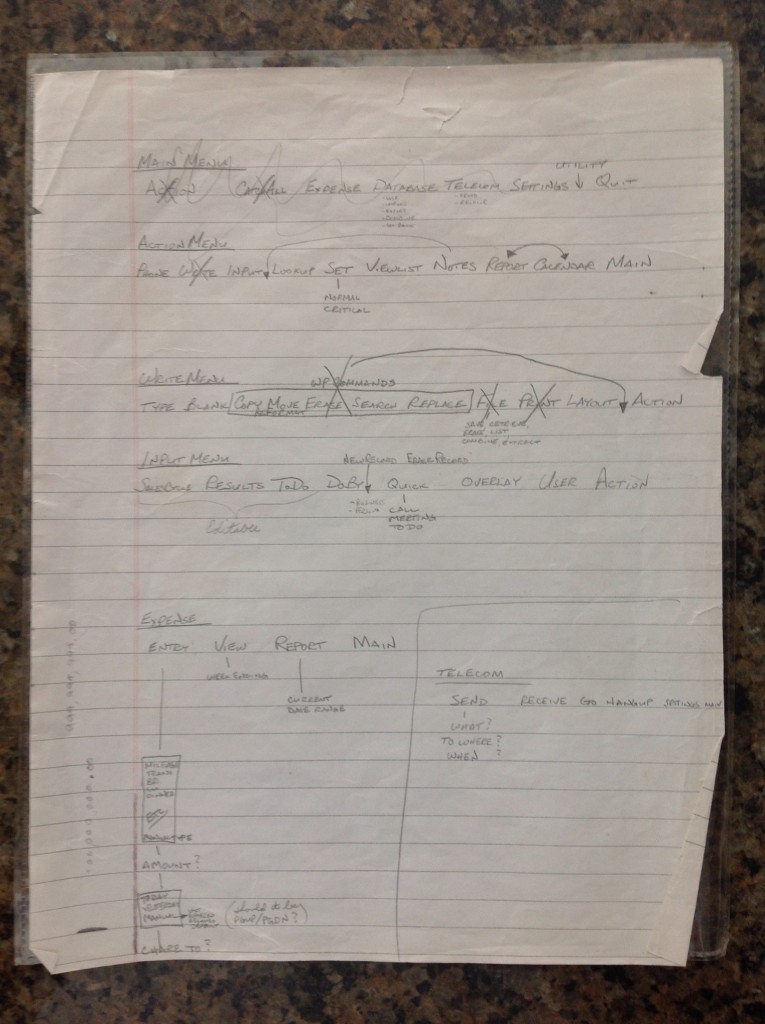 MAIN MENU
UTILITY
ACTION CATCALL EXPENSE DATABASE TELECOM SETTINGS QUIT
ACTION MENU
PHONE WRITE INPUT LOOKUP SET VIEWLIST NOTES REPORT CALENDAR MAIN
NORMAL
CRITICAL
WRITE MENU
WP COMMANDS
TYPE BLANK COPY MOVE ERASE SEARCH REPLACE FILE PRINT LAYOUT ACTION
SAVE RETRIEVE,
ERASE, LIST
COMBINE, EXTRACT
INPUT MENU
NEW RECORD ERASE RECORD
SCHEDULE RESULTS TODO DOBY QUICK OVERLAY USER ACTION
CALL
MEETING
TO DO
Editable
EXPENSE
ENTRY VIEW REPORT MAIN
WEEK ENDING
CURRENT
DATE RANGE
TELECOM
SEND RECEIVE GO HANGUP SETTINGS MAIN
WHAT?
TO WHERE?
WHEN?
AMOUNT?
TODAY
YESTERDAY
MANUAL
CHARGE TO?
999,999,999.00
100,000,000.00